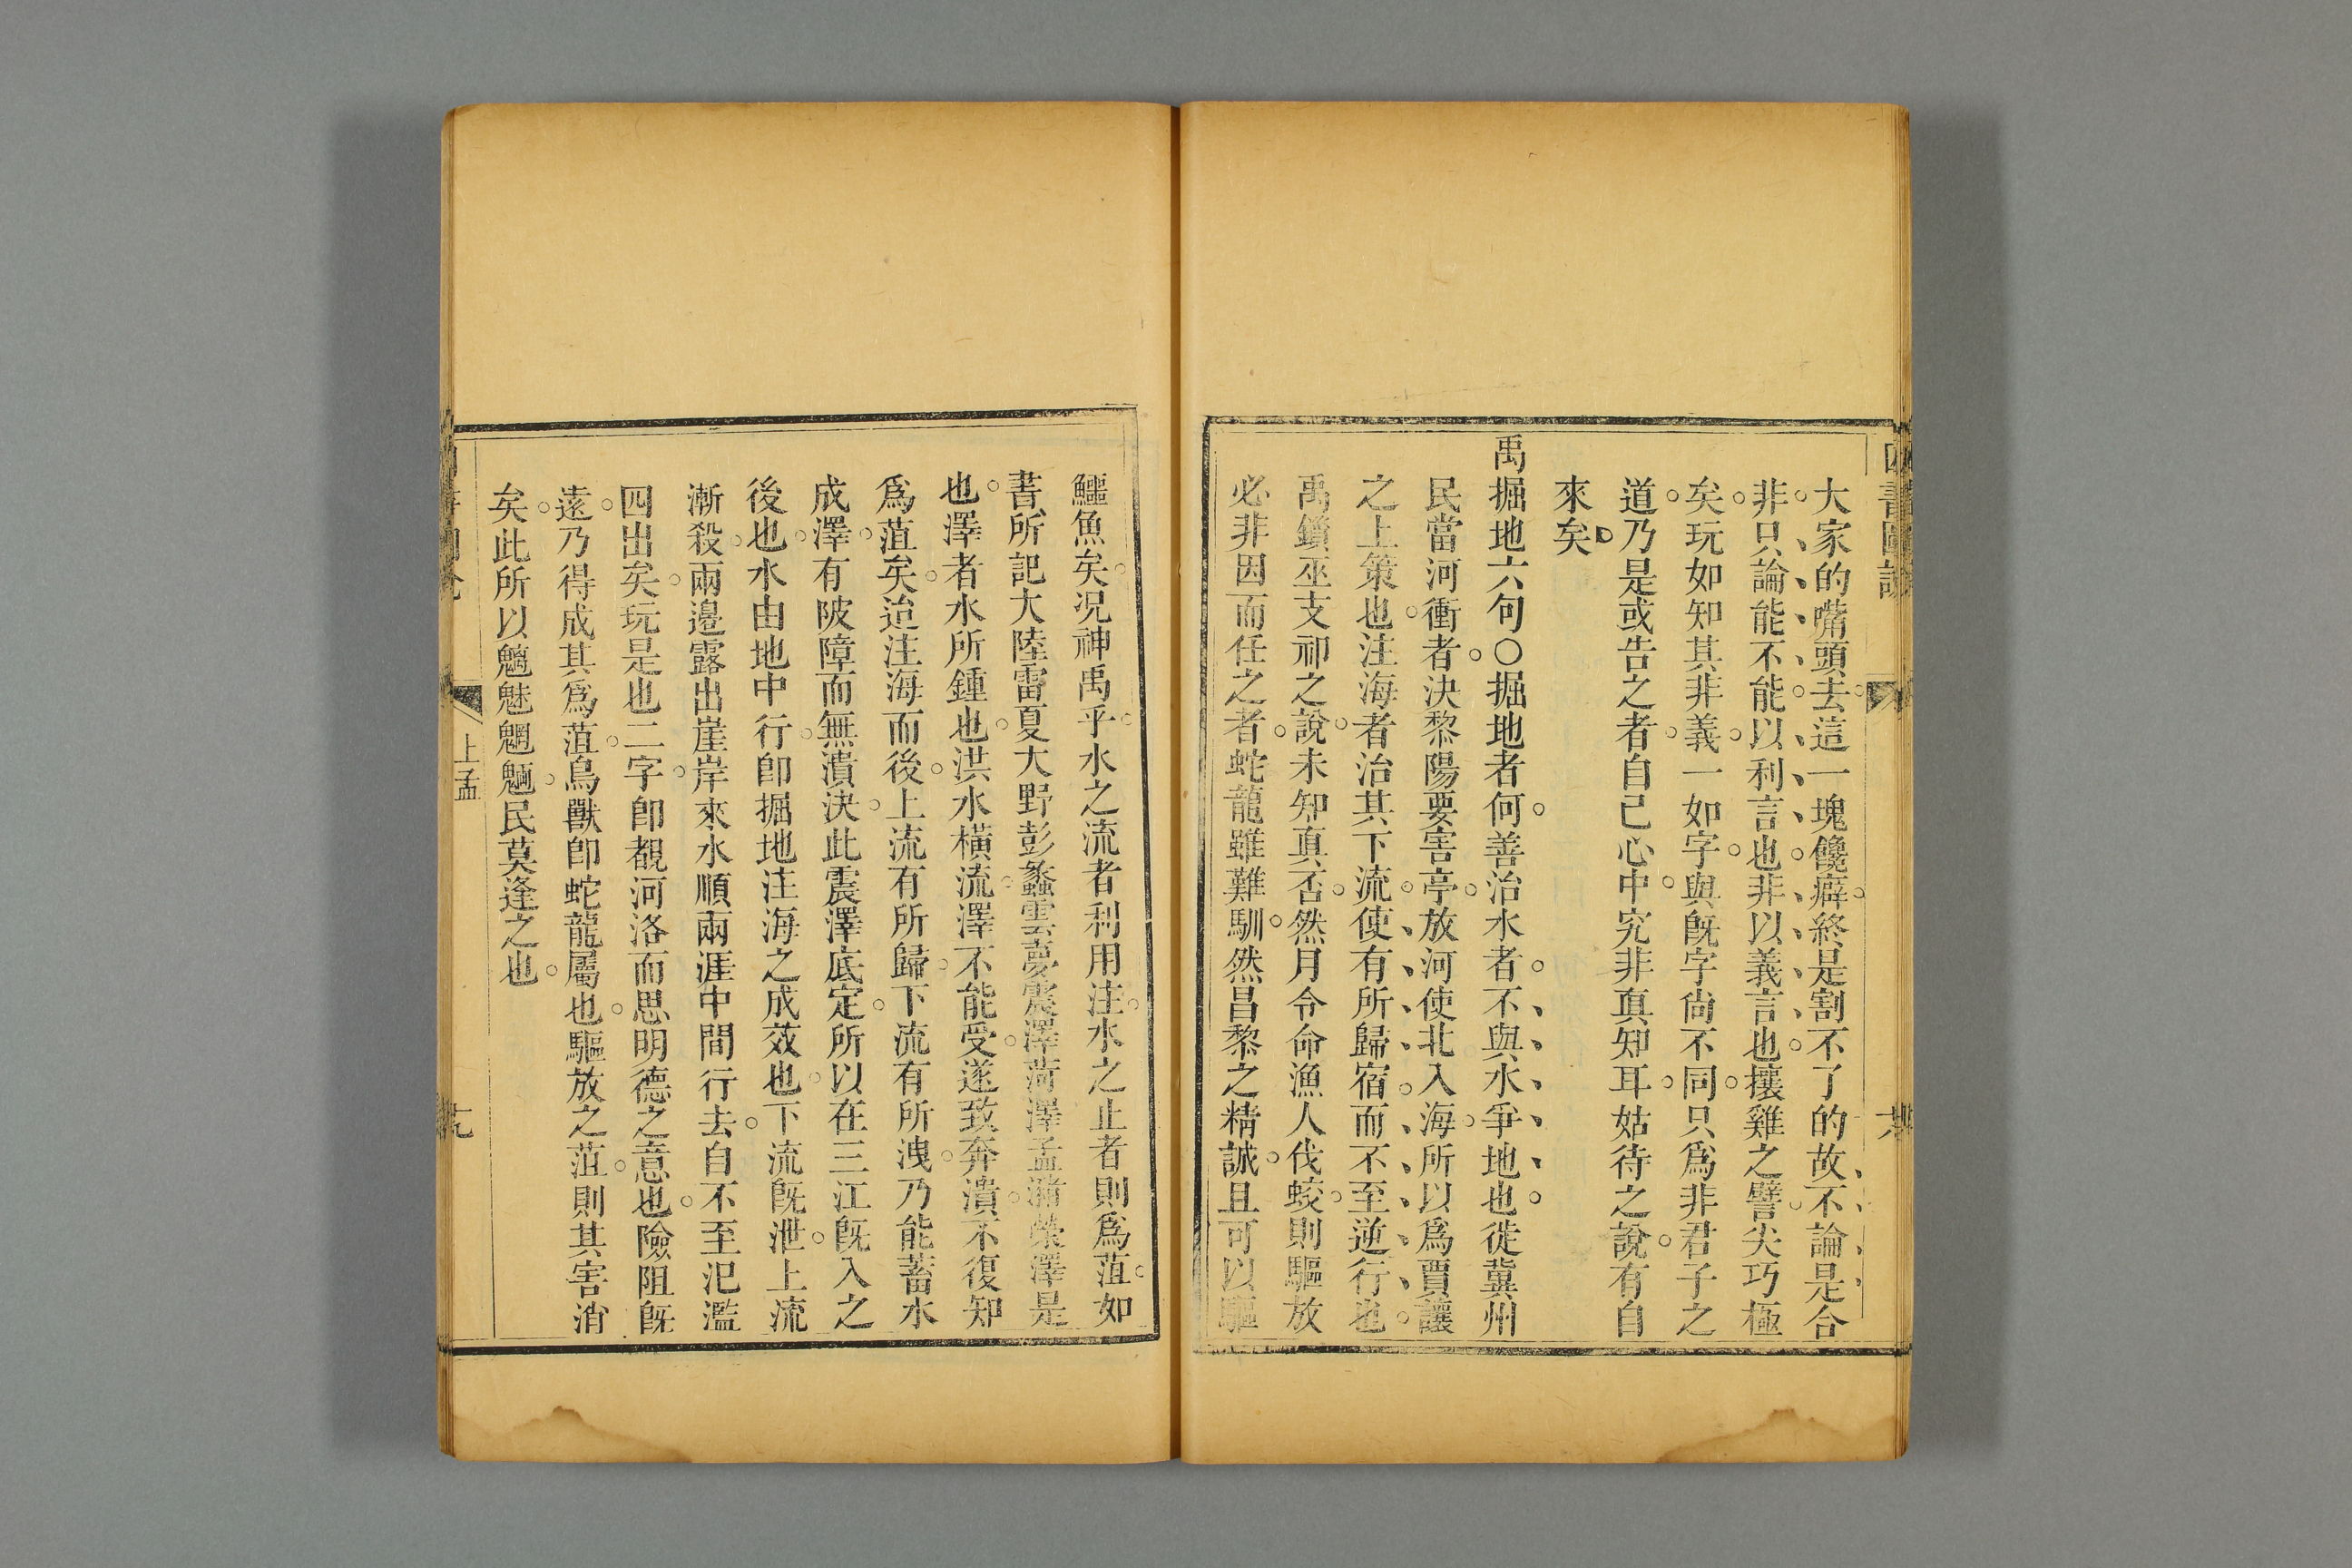 大家的嘴頭去這一塊饞癖終是割不了的故不論是合
非只論能不能以利言也非以義言也攘雞之譬尖巧極
矣玩如知其非義一如字與旣字尙不同只爲非君子之
道乃是或告之者自己心中究非真知耳姑待之說有自
來矣
禹掘地六句○掘地者何善治水者不與水爭地也徙冀州
民當河衝者決黎陽要害亭放河使北入海所以爲賈讓
之上策也注海者治其下流使有所歸宿而不至逆行也
禹鎖巫支祁之說未知真否然月令命漁人伐蛟則驅放
必非因而任之者蛇龍雖難馴然昌黎之精誠且可以驅
鱷魚矣況神禹乎水之流者利用注水之止者則爲菹如
書所記大陸雷夏大野彭蠡雲夢震澤菏澤孟豬滎澤是
也澤者水所鍾也洪水橫流澤不能受遂致奔潰不復知
爲菹矣迨注海而後上流有所歸下流有所洩乃能蓄水
成澤有陂障而無潰決此震澤底定所以在三江旣入之
後也水由地中行卽掘地注海之成效也下流旣泄上流
漸殺兩邊露出崖岸來水順兩涯中間行去自不至汜濫
四出矣玩是也二字卽覩河洛而思明德之意也險阻旣
遠乃得成其爲菹鳥獸卽蛇龍屬也驅放之菹則其害消
矣此所以魑魅魍魎民莫逢之也
上孟